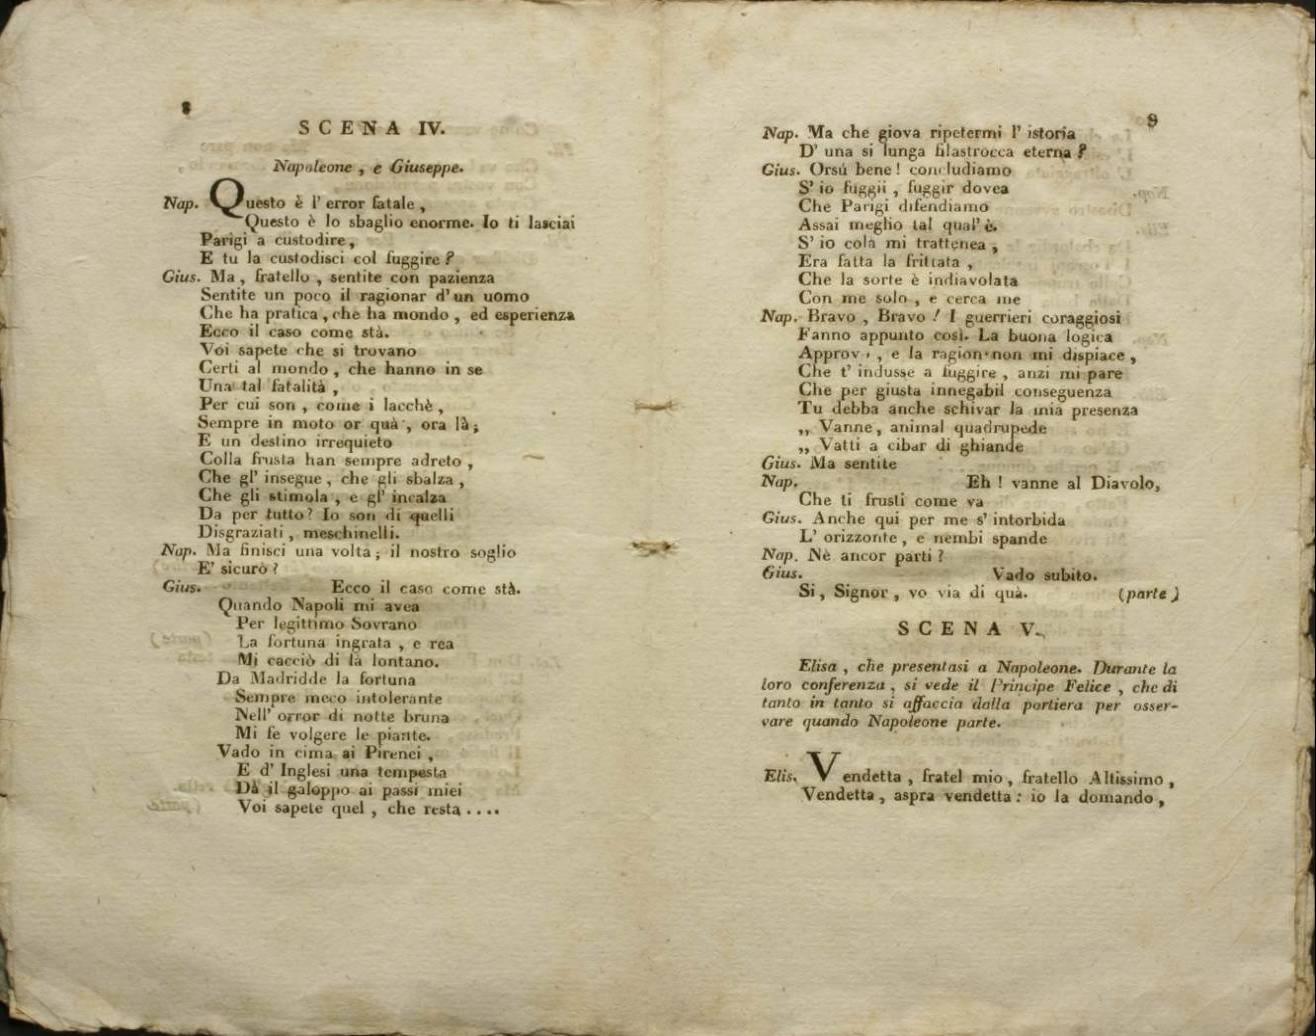 8
SCENA IV.
Napoleone, e Giuseppe.
Nap. Questo è l' error fatale,
Questo è lo sbaglio enorme. Io ti lasciai
Parigi a custodire,
E tu la custodisci col fuggire?
Gius. Ma, fratello, sentite con pazienza
Sentite un poco il ragionar d' un uomo
Che ha pratica, che ha mondo, ed esperienza
Ecco il caso come stà.
Voi sapete che si trovano
Certi al mondo, che hanno in se
Una tal fatalità,
Per cui son, come i lacchè,
Sempre in moto or quà, ora là;
E un destino irrequieto
Colla frusta han sempre adreto,
Che gl' insegue, che gli sbalza,
Che gli stimola, e gl' incalza
Da per tutto? Io son di quelli
Disgraziati, meschinelli.
Nap. Ma finisci una volta; il nostro soglio
E' sicuro?
Gius. Ecco il caso come stà.
Quando Napoli mi avea
Per legittimo Sovrano
La fortuna ingrata, e rea
Mi cacciò di là lontano.
Da Madridde la fortuna
Sempre meco intolerante
Nell' orror di notte bruna
Mi fe volgere le piante.
Vado in cima ai Pirenei,
E d' Inglesi una tempesta
Dà il galoppo ai passi miei
Voi sapete quel, che resta....
9
Nap. Ma che giova ripetermi l' istoria
D' una si lunga filastrocca eterna?
Gius. Orsú bene! concludiamo
S' io fuggii, fuggir dovea
Che Parigi difendiamo
Assai meglio tal qual' è.
S' io colà mi trattenea,
Era fatta la frittata,
Che la sorte è indiavolata
Con me solo, e cerca me
Nap. Bravo, Bravo! I guerrieri coraggiosi
Fanno appunto così. La buona logica
Approv, e la ragion non mi dispiace,
Che t' indusse a fuggire, anzi mi pare
Che per giusta innegabil conseguenza
Tu debba anche schivar la mia presenza
„ Vanne, animal quadrupede
„ Vatti a cibar di ghiande
Gius. Ma sentite
Nap. Eh! vanne al Diavolo,
Che ti frusti come va
Gius. Anche qui per me s' intorbida
L' orizzonte, e nembi spande
Nap. Nè ancor parti?
Gius. Vado subito.
Si, Signor, vo via di quà. (parte)
SCENA V.
Elisa, che presentasi a Napoleone. Durante la
loro conferenza, si vede il Principe Felice, che di
tanto in tanto si affaccia dalla portiera per osser-
vare quando Napoleone parte.
Elis. Vendetta, fratel mio, fratello Altissimo,
Vendetta, aspra vendetta: io la domando,